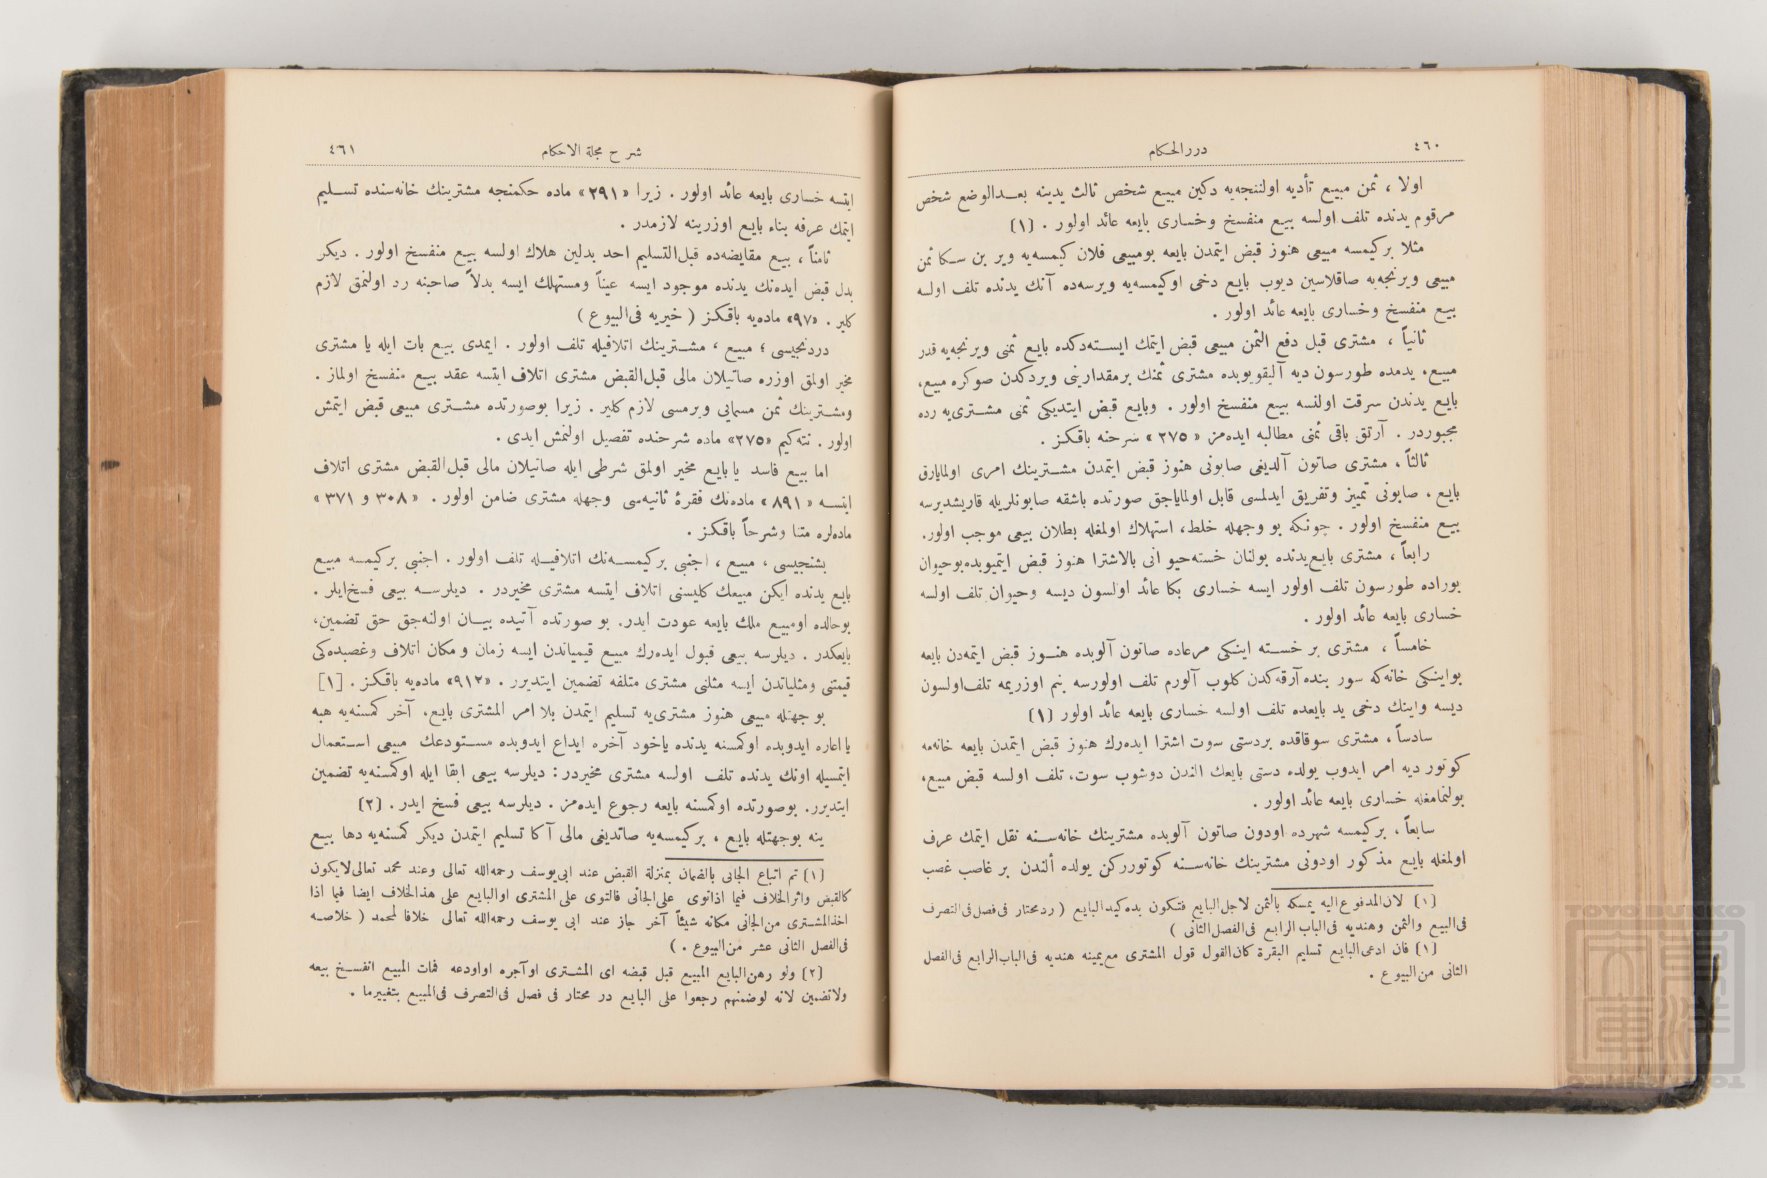 ٤٦٠
دررالحكام
اولا ، ثمن مبيع تأديه اولننجه‌يه دكين مبيع شخص ثالث يدينه بعدالوضع شخص
مرقوم يدنده تلف اولسه بيع منفسخ وخسارى بايعه عائد اولور . (١)
مثلا بركيمسه مبيعى هنوز قبض ايتمدن بايعه بومبيعى فلان كيمسه‌يه وير بن سكا ثمن
مبيعى ويرنجه‌يه صاقلاسين ديوب بايع دخى اوكيمسه‌يه ويرسه‌ده آنك يدنده تلف اولسه
بيع منفسخ وخسارى بايعه عائد اولور .
ثانياً ، مشترى قبل دفع الثمن مبيعى قبض ايتمك ايسته‌دكده بايع ثمنى ويرنجه‌يه قدر
مبيع، يدمده طورسون ديه آليقويوبده مشترى ثمنك برمقدارينى ويردكدن صوكره مبيع،
بايع يدندن سرقت اولنسه بيع منفسخ اولور . وبايع قبض ايتديكى ثمنى مشترى‌يه رده
مجبوردر . آرتق باقى ثمنى مطالبه ايده‌مز « ٢٧٥ » شرحنه باقكز .
ثالثاً ، مشترى صاتون آلديغى صابونى هنوز قبض ايتمدن مشترينك امرى اولمايارق
بايع ، صابونى تمييز وتفريق ايدلمسى قابل اولماياجق صورتده باشقه صابونلريله قاريشديرسه
بيع منفسخ اولور . چونكه بو وجهله خلط، استهلاك اولمغله بطلان بيعى موجب اولور.
رابعاً ، مشترى بايع‌يدنده بولنان خسته‌حيوانى بالاشترا هنوز قبض ايتميوبده‌بوحيوان
بوراده طورسون تلف اولور ايسه خسارى بكا عائد اولسون ديسه وحيوان تلف اولسه
خسارى بايعه عائد اولور .
خامساً ، مشترى بر خسته اينكى مرعاده صاتون آلوبده هنوز قبض ايتمه‌دن بايعه
بواينكى خانه‌كه سور بنده آرقه‌كدن كلوب آلورم تلف اولورسه بنم اوزريمه تلف‌اولسون
ديسه واينك دخى يد بايعده تلف اولسه خسارى بايعه عائد اولور (١)
سادساً ، مشترى سوقاقده بردستى سوت اشترا ايده‌رك هنوز قبض ايتمدن بايعه خانه‌مه
كوتور ديه امر ايدوب يولده دستى بايعك الندن دوشوب سوت، تلف اولسه قبض مبيع،
بولنمامغله خسارى بايعه عائد اولور .
سابعاً ، بركيمسه شهرده اودون صاتون آلوبده مشترينك خانه‌سنه نقل ايتمك عرف
اولمغله بايع مذكور اودونى مشترينك خانه‌سنه كوتورركن يولده ألندن بر غاصب غصب
(١) لان‌المدفوع‌اليه يمسكه بالثمن لاجل‌البايع فتكون يده كيدالبايع ( ردمحتار فى‌فصل‌فى‌التصرف
فى‌البيع والثمن وهنديه فى‌الباب الرابع فى‌الفصل‌الثانى )
(١) فان ادعى‌البايع تسليم البقرة كان‌القول قول المشترى مع‌يمينه هنديه فى‌الباب‌الرابع فى‌الفصل
الثانى من‌البيوع .
شرح مجلة الاحكام
٤٦١
ايتسه خسارى بايعه عائد اولور . زيرا «٢٩١» ماده حكمنجه مشترينك خانه‌سنده تسليم
ايتمك عرفه بناء بايع اوزرينه لازمدر .
ثامناً ، بيع مقايضه‌ده قبل‌التسليم احد بدلين هلاك اولسه بيع منفسخ اولور . ديكر
بدل قبض ايده‌نك يدنده موجود ايسه عيناً ومستهلك ايسه بدلاً صاحبنه رد اولنمق لازم
كلير . «٩٧» ماده‌يه باقكز ( خيريه فى‌البيوع )
دردنجيسى ؛ مبيع ، مشترينك اتلافيله تلف اولور . ايمدى بيع بات ايله يا مشترى
مخير اولمق اوزره صاتيلان مالى قبل‌القبض مشترى اتلاف ايتسه عقد بيع منفسخ اولماز .
ومشترينك ثمن مسمانى ويرمسى لازم كلير . زيرا بوصورتده مشترى مبيعى قبض ايتمش
اولور . نته‌كيم «٢٧٥» ماده شرحنده تفصيل اولنمش ايدى .
اما بيع فاسد يا بايع مخير اولمق شرطى ايله صاتيلان مالى قبل‌القبض مشترى اتلاف
ايتسه «٨٩١» ماده‌نك فقرۀ ثانيه‌سى وجهله مشترى ضامن اولور . « ٣٠٨ و ٣٧١ »
ماده‌لره متنا وشرحاً باقكز .
بشنجيسى ، مبيع ، اجنبى بركيمسه‌نك اتلافيله تلف اولور . اجنبى بركيمسه مبيع
بايع يدنده ايكن مبيعك كليسنى اتلاف ايتسه مشترى مخيردر . ديلرسه بيعى فسخ‌ايلر .
بوحالده اومبيع ملك بايعه عودت ايدر. بو صورتده آتيده بيان اولنه‌جق حق تضمين،
بايعكدر . ديلرسه بيعى قبول ايده‌رك مبيع قيمياتدن ايسه زمان و مكان اتلاف وغصبده‌كى
قيمتنى ومثلياتدن ايسه مثلنى مشترى متلفه تضمين ايتديرر . «٩١٢» ماده‌يه باقكز . [١]
بو جهتله مبيعى هنوز مشترى‌يه تسليم ايتمدن بلا امر المشترى بايع، آخر كمسنه‌يه هبه
يا اعاره ايدوبده اوكمسنه يدنده ياخود آخره ايداع ايدوبده مستودعك مبيعى استعمال
ايتمسيله اونك يدنده تلف اولسه مشترى مخيردر: ديلرسه بيعى ابقا ايله اوكمسنه‌يه تضمين
ايتديرر. بوصورتده اوكمسنه بايعه رجوع ايده‌مز . ديلرسه بيعى فسخ ايدر . (٢)
ينه بوجهتله بايع ، بركيمسه‌يه صاتديغى مالى آكا تسليم ايتمدن ديكر كمسنه‌يه دها بيع
(١) ثم اتباع الجانى بالضمان بمنزلة القبض عند ابى‌يوسف رحمه‌الله تعالى وعند محمد تعالى‌لايكون
كالقبض واثرالخلاف فيما اذاتوى على‌الجانى فالتوى على المشترى اوالبايع على هذالخلاف ايضا فيما اذا
اخذالمشترى من‌الجانى مكانه شيئاً آخر جاز عند ابى يوسف رحمه‌الله تعالى خلافا لمحمد ( خلاصه
فى‌الفصل الثانى عشر من‌البيوع . )
(٢) ولو رهن‌البايع المبيع قبل قبضه اى المشترى اوآجره اواودعه فمات المبيع انفسخ بيعه
ولاتضمين لانه لوضمنهم رجعوا على البايع در مختار فى فصل فى‌التصرف فى‌المبيع بتغييرما .
TOYO BUNKO